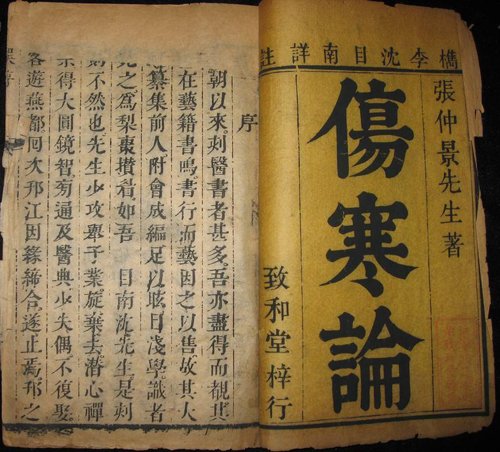 檇李沈目南詳註
張仲景先生著
傷寒論
致和堂梓行
序
朝以來刻醫書者甚多吾亦盡得而觀其
在藝籍書鳴書行而藝因之以售故其大
纂集前人附會成編足以眩目淺學識者
之為梨棗攢眉如吾 目南沈先生是刻
則不然也先生少攻舉子業旋棄去潛心禪
宗得大圓鏡智旁通及醫典少失偶不復娶
客遊燕都次邗江因緣締合遂止焉邗之